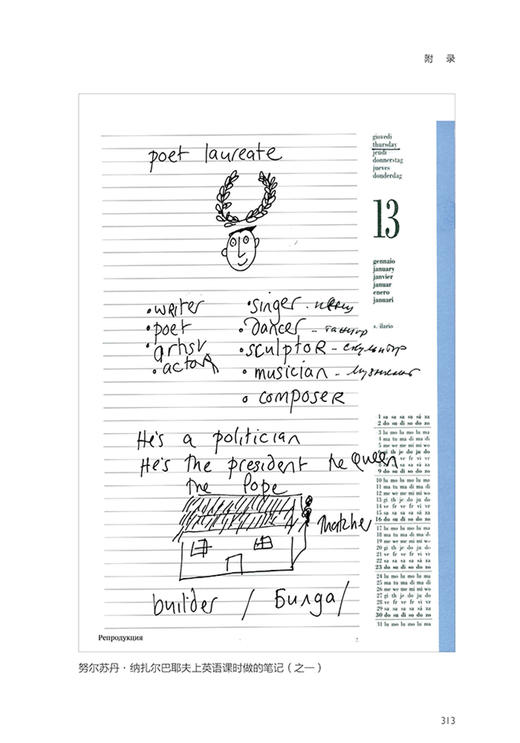 附 录
poet laureate
giovedì
thursday
jeudi
donnerstag
jueves
donderdag
13
gennaio
january
janvier
januar
enero
januari
s. ilario
• writer
• poet
• artist
• actor
• singer - певец
• dancer - танцор
• sculptor - скульптор
• musician - музыкант
• composer
He's a politician
He's the president the Queen
the Pope
thatcher
builder / Билда/
1 sa sa sa sa sá za
2 do su di so do zo
3 lu mo mo lu lu ma
4 ma tu ma di ma di
5 me we me mi mi wo
6 gi th je do ju do
9 do su di so do zo
10 lu mo mo lu lu ma
11 ma tu ma di ma di
12 me we me mi mi wo
13 gi th je do ju do
14 ve fr ve fr vi vr
15 sa sa sa sa sá za
16 do su di so do zo
17 lu mo mo lu lu ma
18 ma tu ma di ma di
19 me we me mi mi wo
20 gi th je do ju do
21 ve fr ve fr vi vr
22 sa sa sa sa sá za
23 do su di so do zo
24 lu mo mo lu lu ma
25 ma tu ma di ma di
26 me we me mi mi wo
27 gi th je do ju do
28 ve fr ve fr vi vr
29 sa sa sa sa sá za
30 do su di so do zo
31 lu mo mo lu lu ma
Репродукция
努尔苏丹·纳扎尔巴耶夫上英语课时做的笔记（之一）
313